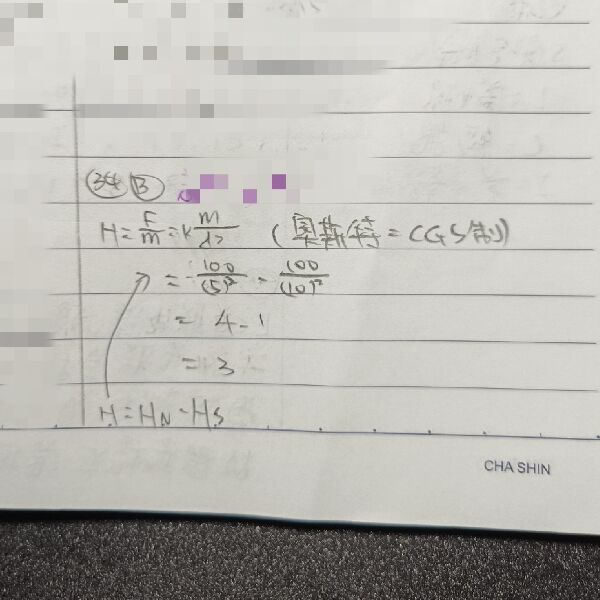 34 B
H = F/m = k m/d² (奧斯特 = CGS制)
= 100/(5)² - 100/(10)²
= 4 - 1
= 3
H = HN - HS
CHA SHIN